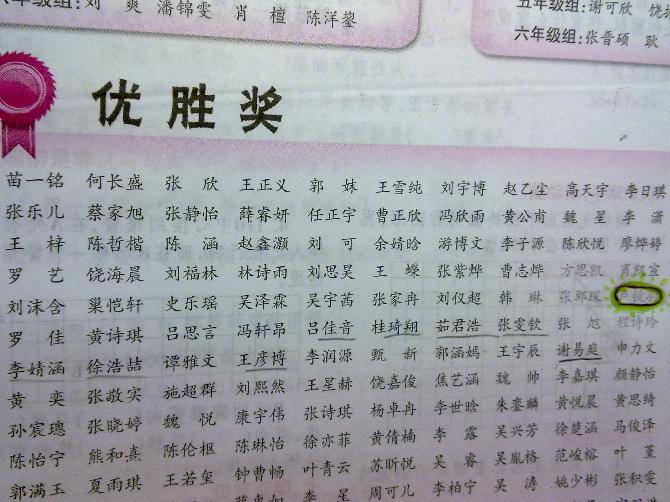 六年级组:刘　爽　潘锦雯　肖　檀　陈洋鋆
五年级组:谢可欣　饶
六年级组:张晋硕　耿
优胜奖
苗一铭　何长盛　张　欣　王正义　郭　妹　王雪纯　刘宇博　赵乙尘　高天宇　李日琪
张乐儿　蔡家旭　张静怡　薛睿妍　任正宇　曹正欣　冯欣雨　黄公甫　魏　星　李　潇
王　梓　陈哲楷　陈　涵　赵鑫灏　刘　可　余婧晗　游博文　李子源　陈欣悦　廖烨婷
罗　艺　饶海晨　刘福林　林诗雨　刘思昊　王　嵘　张紫烨　曹志烨　方思凯　肖凯宣
刘沫含　巢恺轩　史乐瑶　吴泽霖　吴宇茜　张家冉　刘仪超　韩　琳　张郅琛
罗　佳　黄诗琪　吕思言　冯轩昂　吕佳音　桂琦翔　茹君浩　张雯钦　张　旭　程诗玲
李婧涵　徐浩喆　谭雅文　王彦博　李润源　甄　新　郭涵嫣　王宇辰　谢易庭　申力文
黄　奕　张敖实　施超群　刘熙然　王星赫　饶嘉俊　焦艺涵　魏　帅　李嘉琪　颜静怡
孙宸璁　张晓婷　魏　悦　康宇伟　张诗琪　杨卓冉　李世晗　朱銮麟　黄悦晨　黄思绮
陈怡宁　熊和熹　陈伦枢　陈琳怡　徐亦菲　黄倩楠　李　露　吴兴芳　徐楚涵　马俊泽
郭满玉　夏雨琪　王若玺　钟曹畅　叶青云　苏昕悦　吴　睿　吴胤格　范峻榕　叶　堇
李　星　周可儿　李柏宁　吴　涛　姚少彬　张积雯